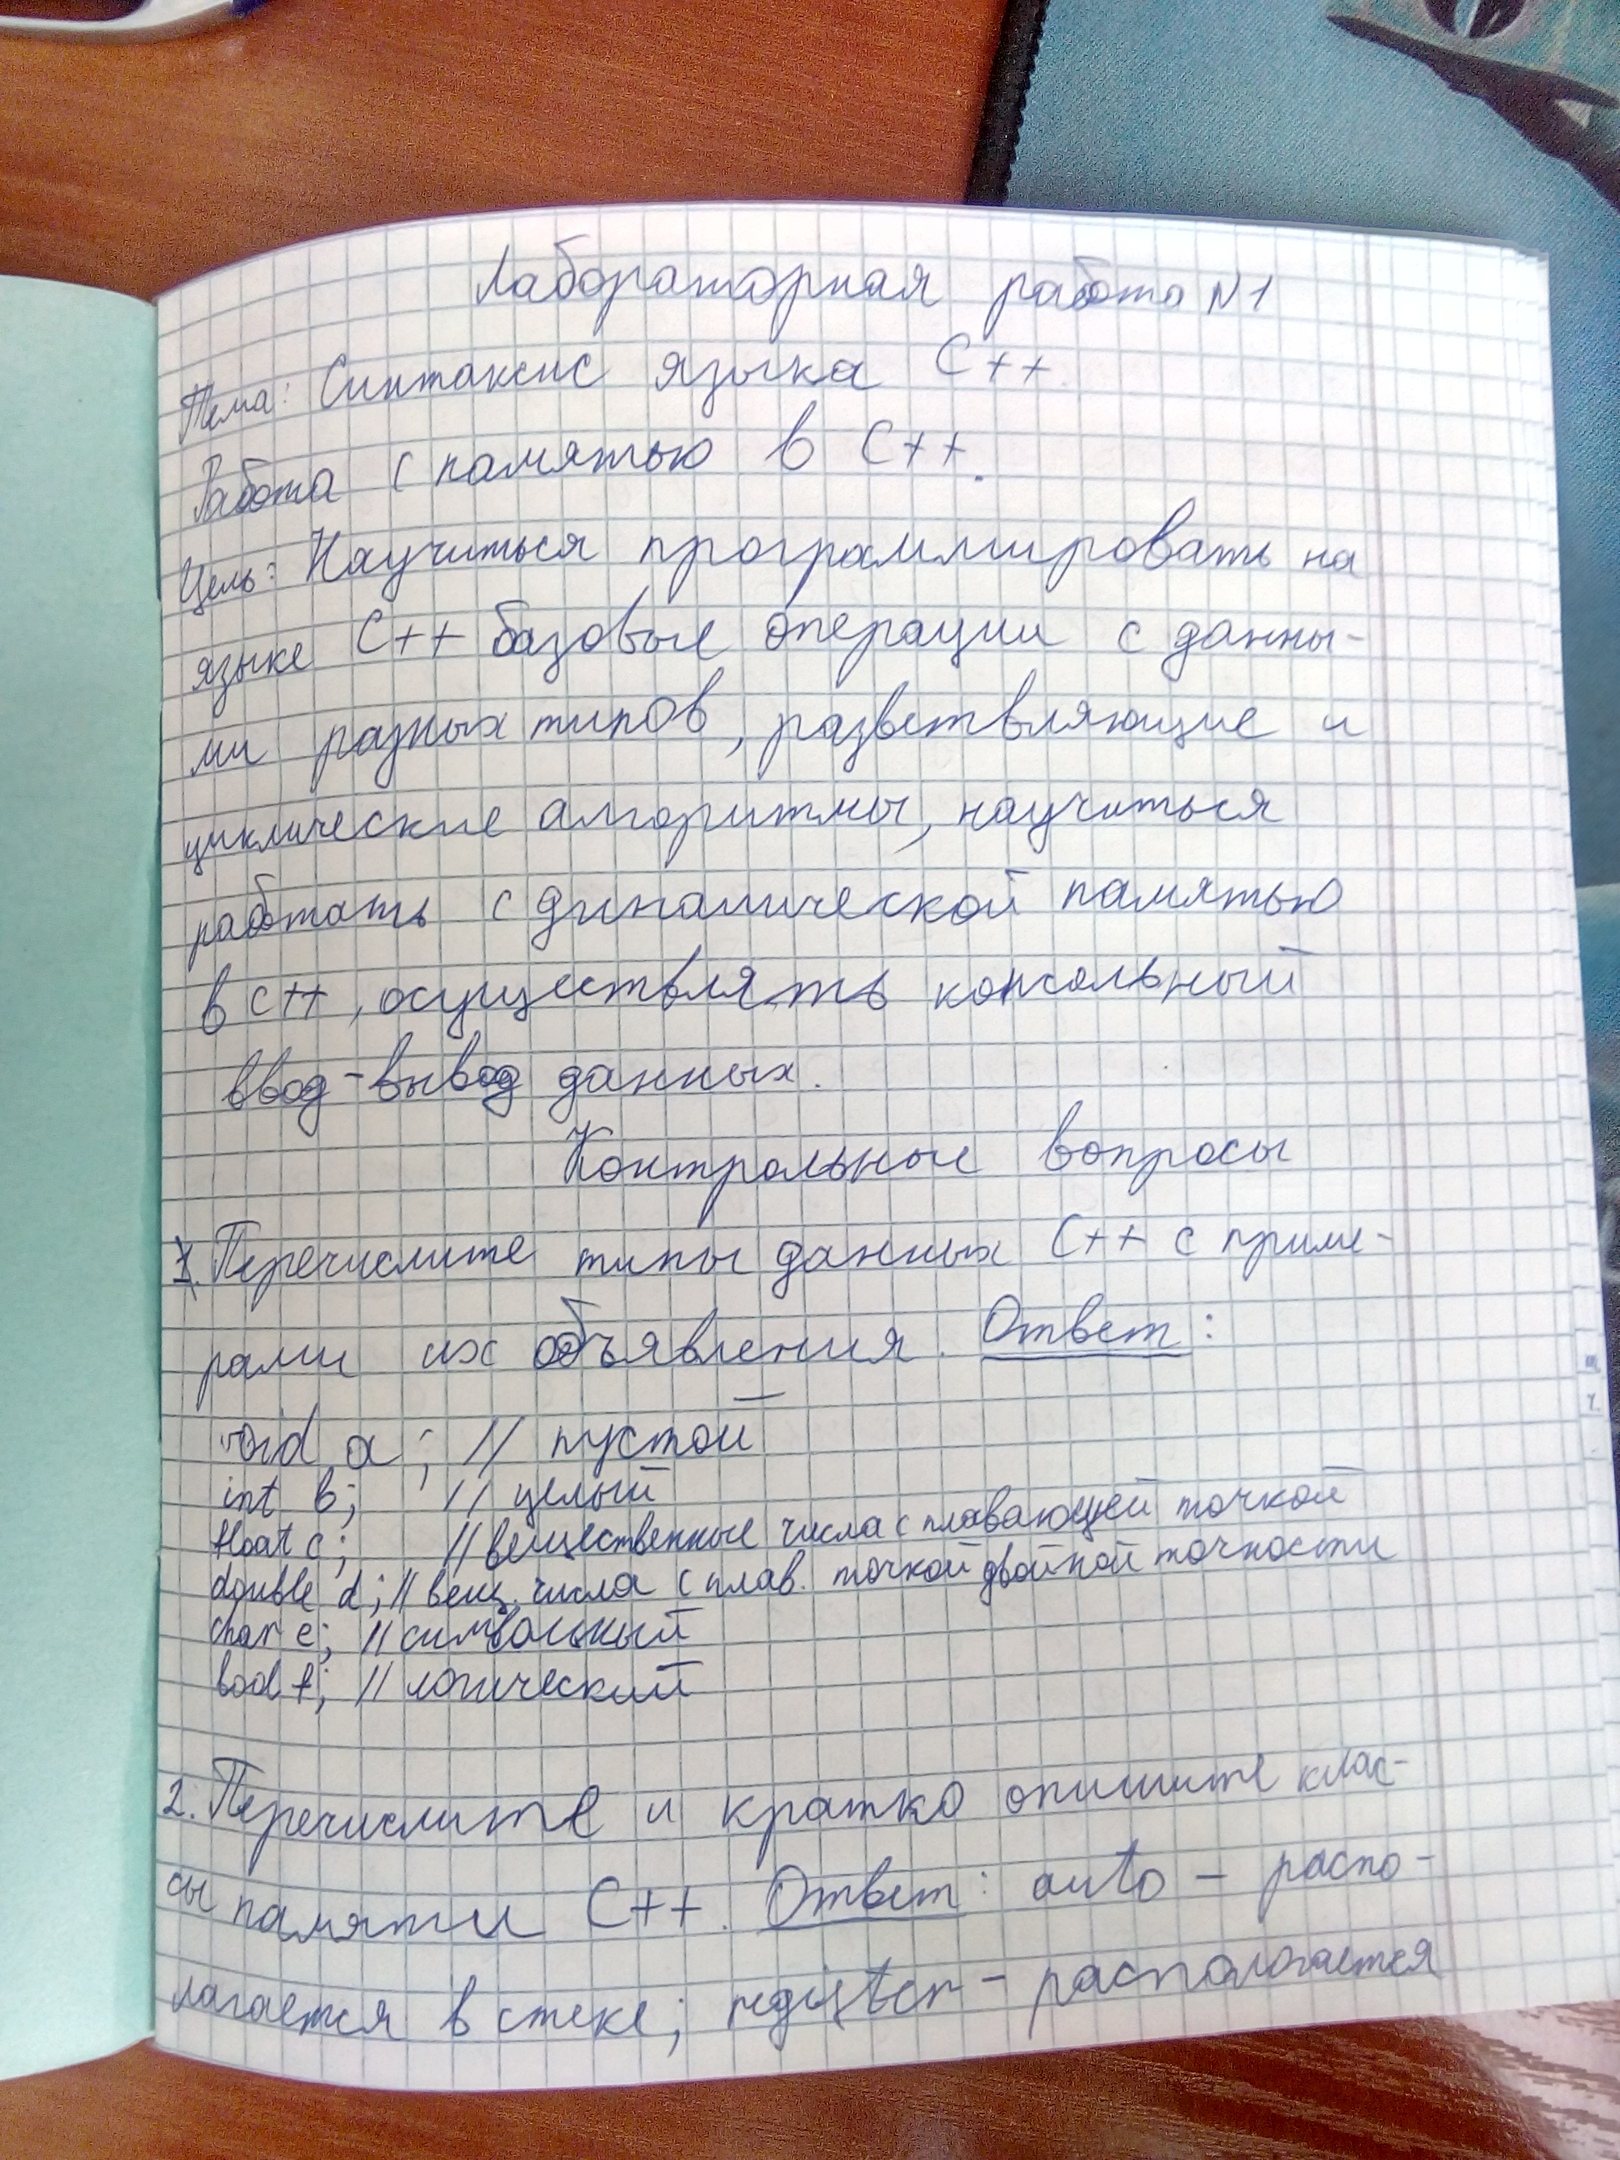 Лабораторная работа N1
Тема: Синтаксис языка C++.
Работа с памятью в C++.
Цель: Научиться программировать на
языке C++ базовые операции с данны-
ми разных типов, разветвляющие и
циклические алгоритмы, научиться
работать с динамической памятью
в C++, осуществлять консольный
ввод-вывод данных.
Контрольные вопросы
1. Перечислите типы данных C++ с приме-
рами их объявления. Ответ:
void a; // пустой
int b; // целый
float c; // вещественные числа с плавающей точкой
double d; // вещ. числа с плав. точкой двойной точности
char e; // символьный
bool f; // логический
2. Перечислите и кратко опишите клас-
сы памяти C++. Ответ: auto - распо-
лагается в стеке; register - распологается